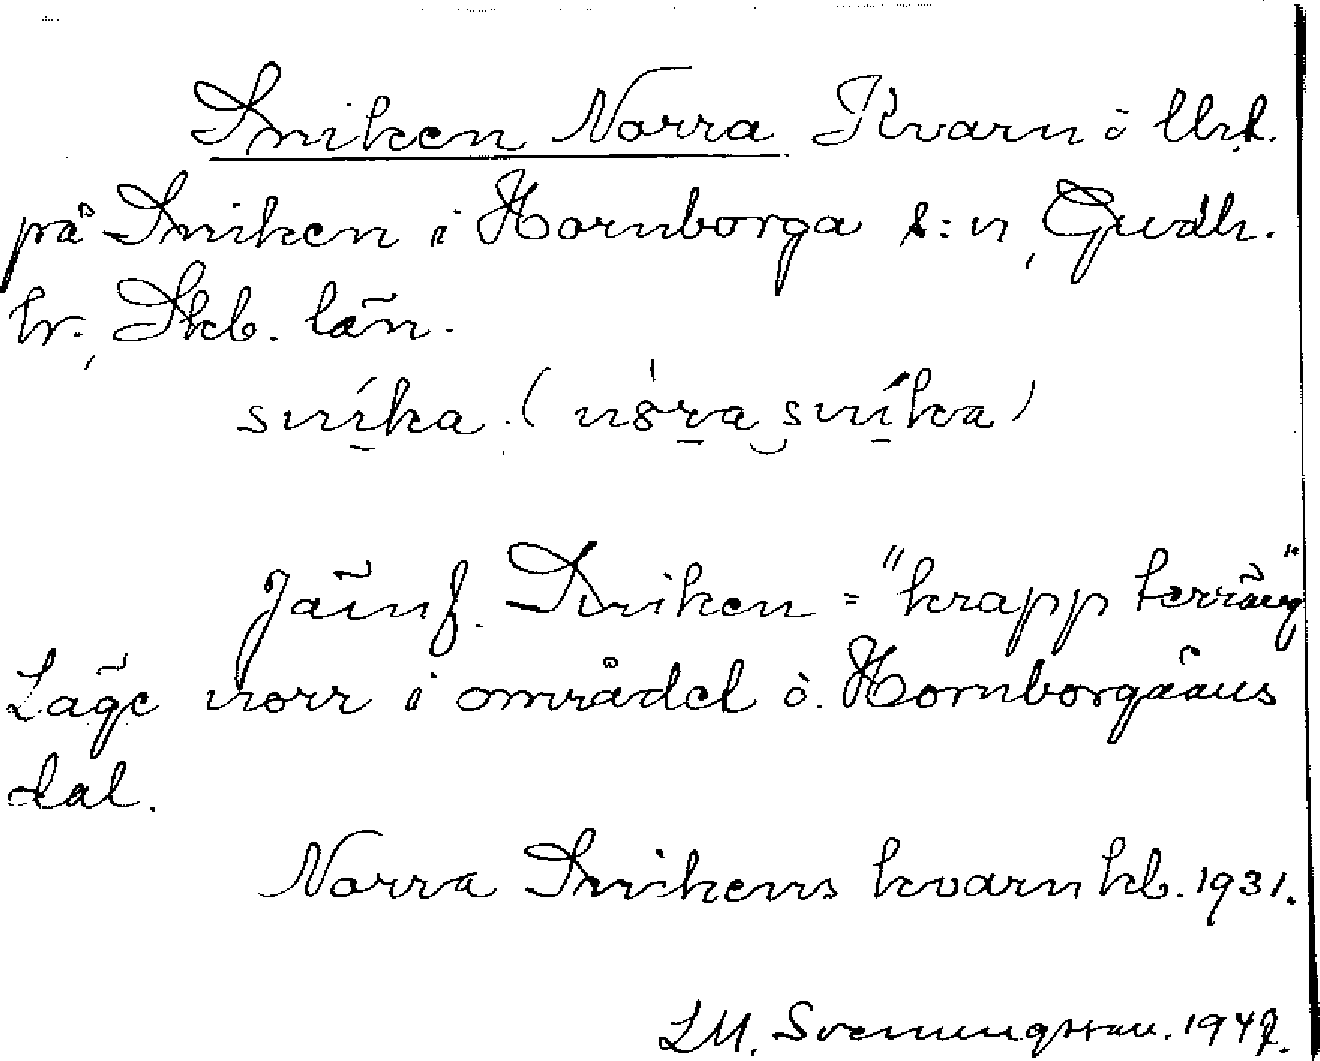 Sniken Norra Kvarn o
på Sniken i Hornborga s:n, Gudh.
hr., Skb. län.
snika. (nora snika)
Jämf. Sniken = "knapp terräng"
Läge norr i området ö. Hornborgaåns
dal.
Norra Snikens kvarn kb. 1931.
LM. Svenungsson. 1947.